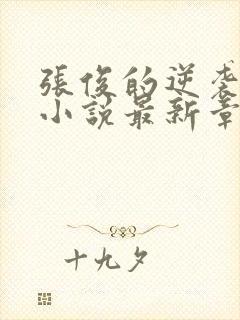 張俊的逆袭
小說最新章
十九夕